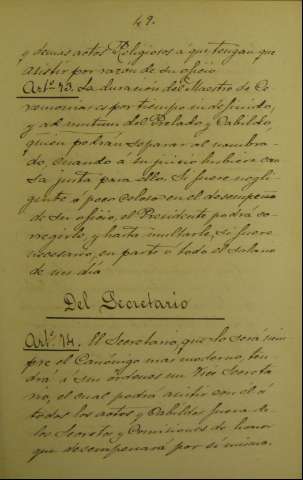 49.
y demas actos Religiosos á que tengan que
asistir por razón de su oficio.
Artº. 73. La duracion del Maestro de Ce-
remonias es por tiempo indefinido,
y ad nutum del Prelado y Cabildo,
quien podrán separar al nombra-
do, cuando á su juicio hubiere cau-
sa justa para ello. Si fuere negli-
gente ó poco celoso en el desempeño
de su oficio, el Presidente podrá co-
rregirle, y hasta multarle, si fuere
necesario, en parte o todo el salario
de un dia
Del Secretario
Artº. 74. El Secretario, que lo será siem-
pre el Canónigo mas moderno, ten-
drá á sus órdenes un Vice Secreta-
rio, el cual podrá asistir con él á
todos los actos y Cabildos fuera de
los Secretos y Comisiones de honor
que desempeñará por sí mismo.